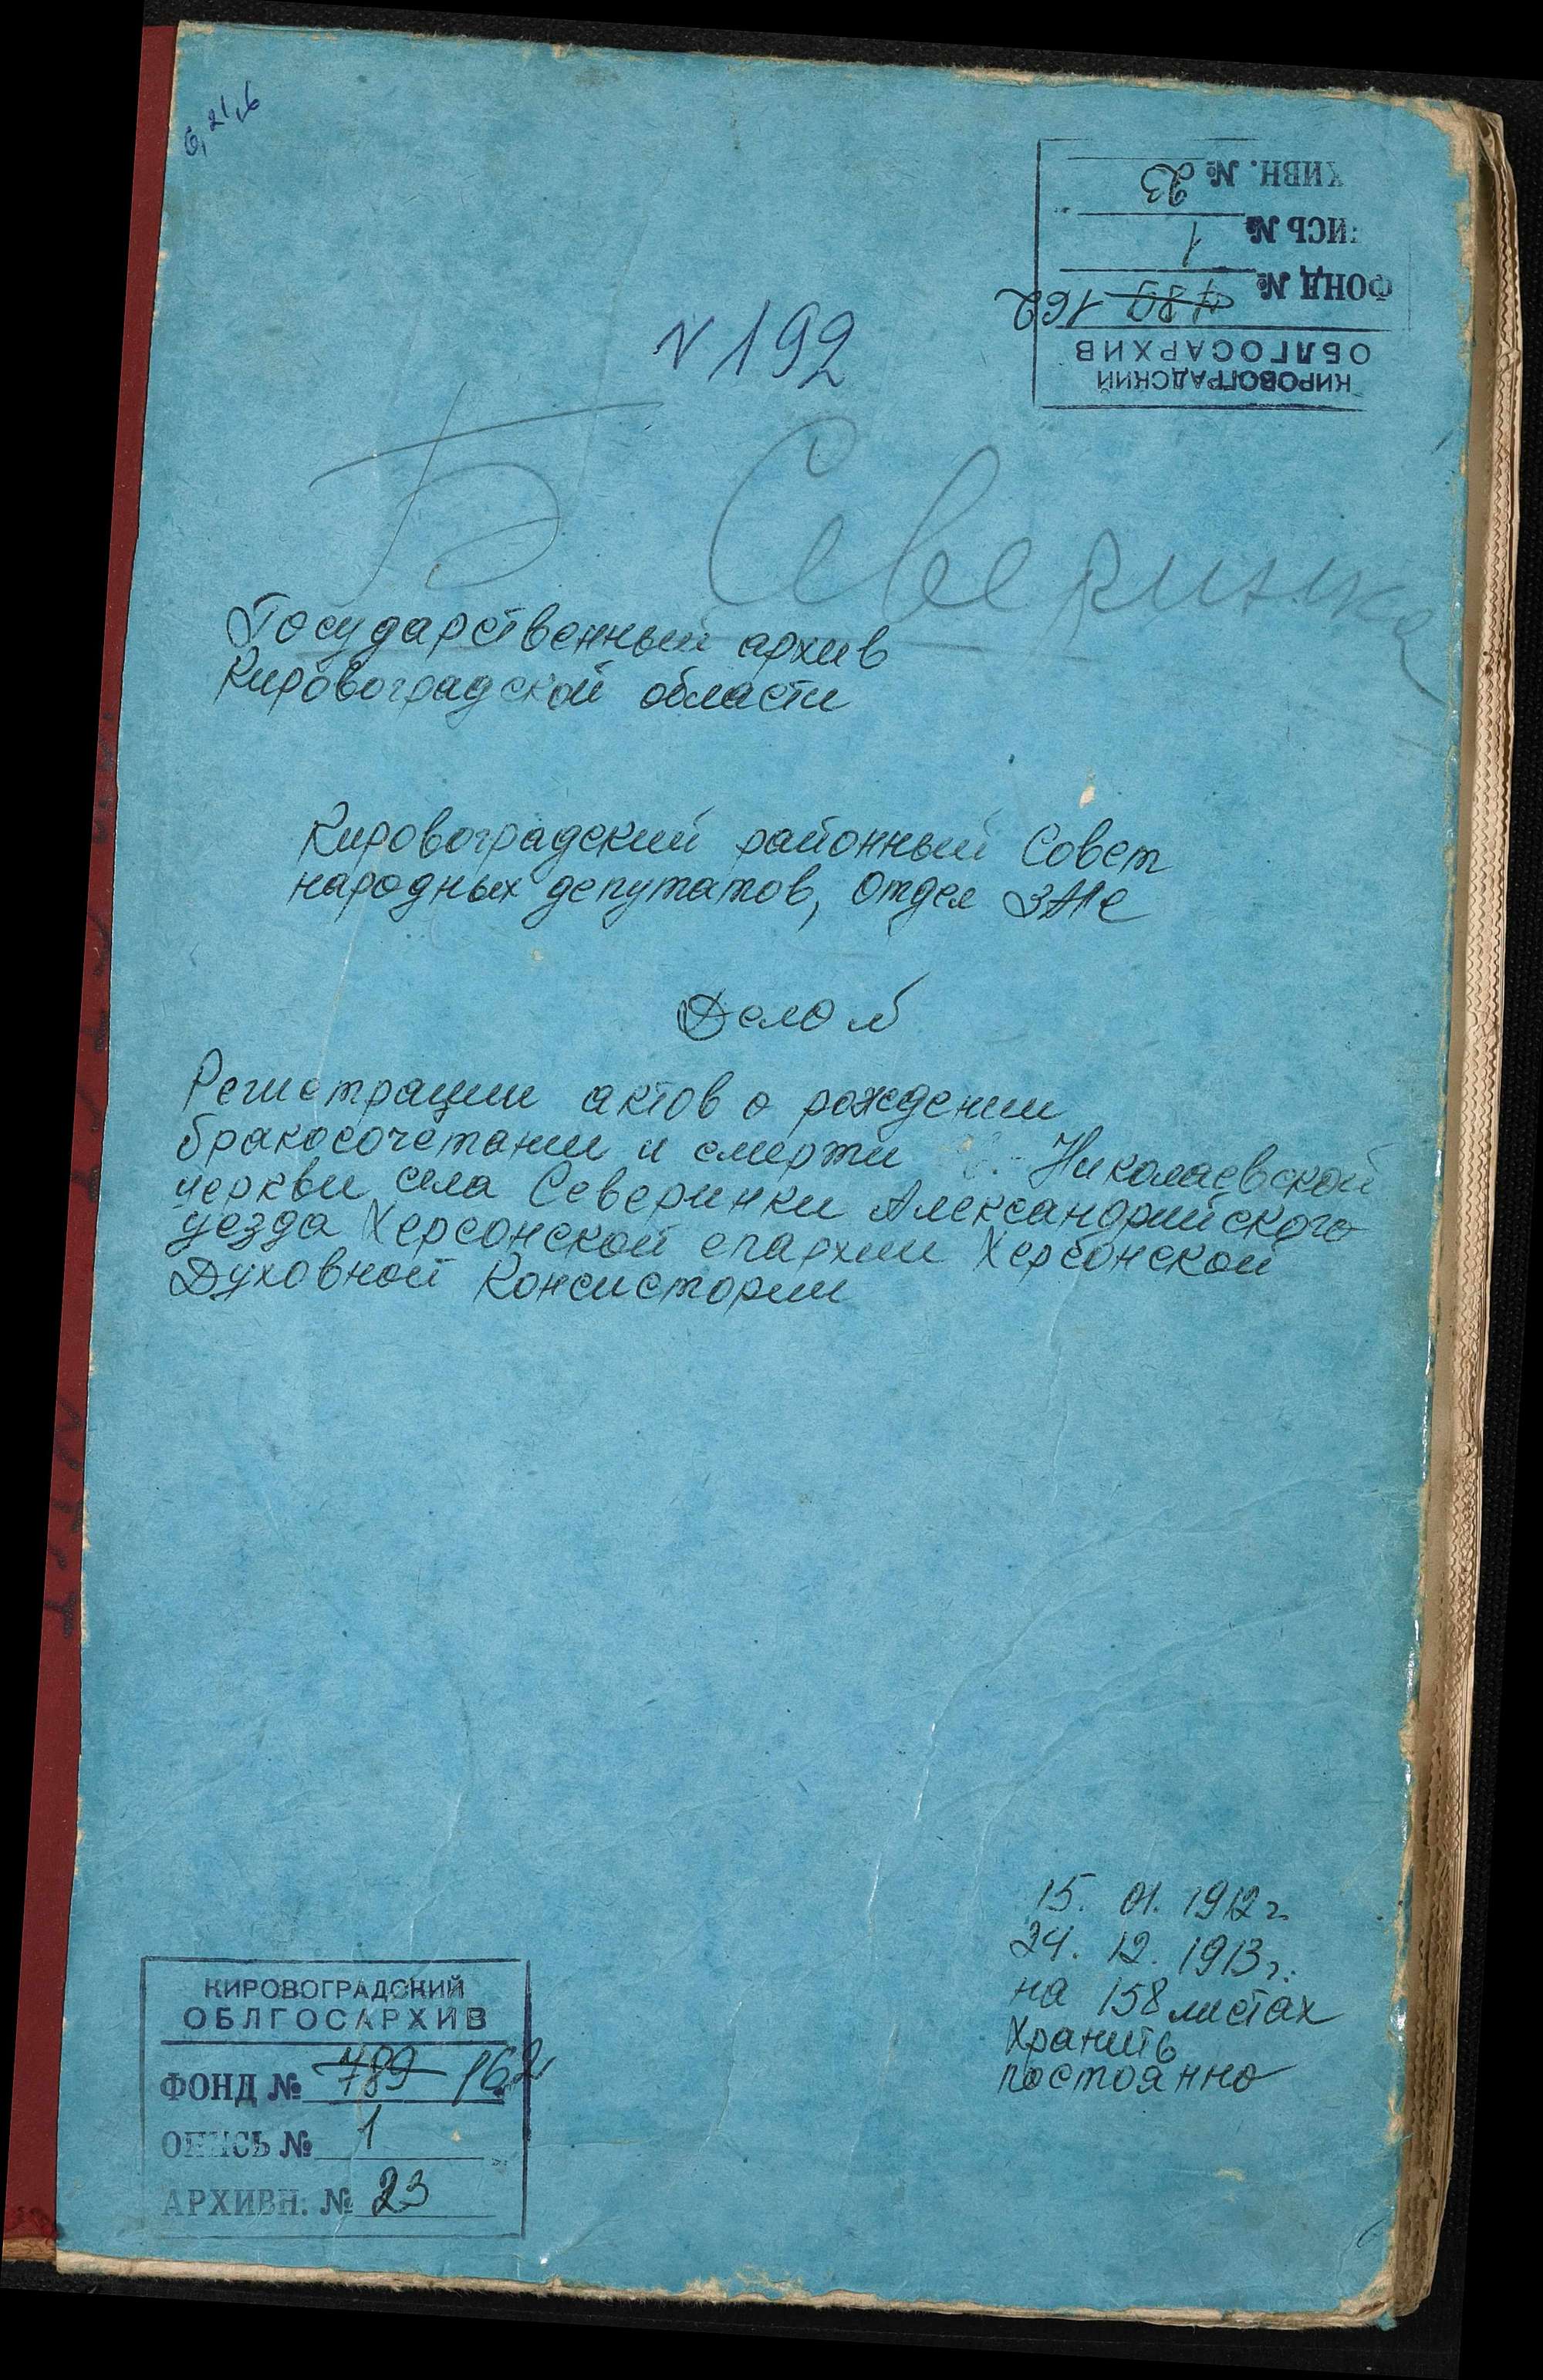 6, 21, 6
КИРОВОГРАДСКИЙ
ОБЛГОСАРХИВ
ФОНД № 789 162
ИСЬ № 1
ХИВН. № 23
N 192
Б Северинка
Государственный архив
Кировоградской области
Кировоградский районный Совет
народных депутатов, отдел ЗАГС
Дело №
Регистрации актов о рождении
бракосочетании и смерти Николаевской
церкви села Северинки Александрийского
уезда Херсонской епархии Херсонской
Духовной Консистории
15. 01. 1912 г.
24. 12. 1913 г.
на 158 листах
Хранить
постоянно
КИРОВОГРАДСКИЙ
ОБЛГОСАРХИВ
ФОНД № 789 162
ОПИСЬ № 1
АРХИВН. № 23